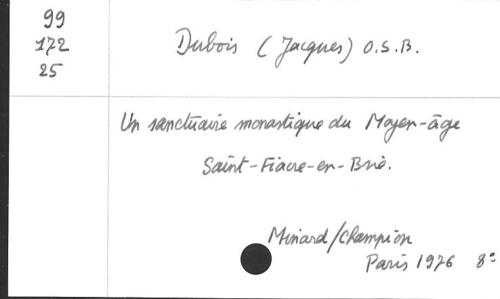 99
172
25
Dubois (Jacques) O.S.B.
Un sanctuaire monastique du Moyen-âge
Saint-Fiacre-en-Brie.
Minard/Champion
Paris 1976 8°